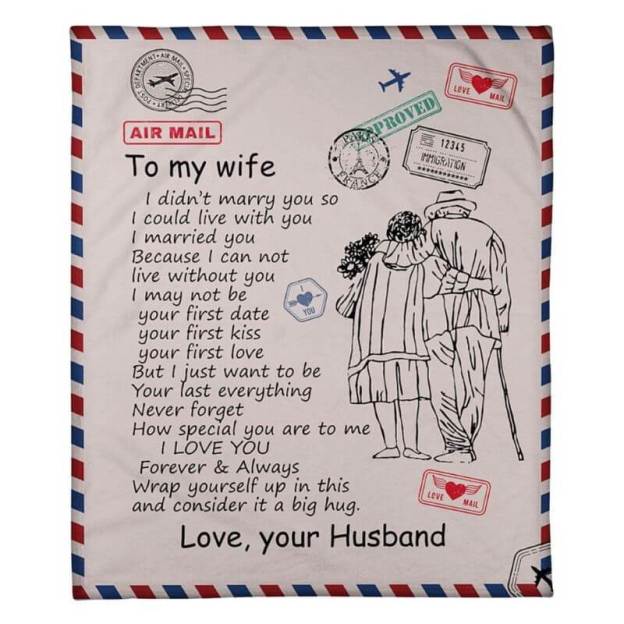 POST DEPARTMENT • AIR MAIL • SPECIAL
LOVE MAIL
APPROVED
12345
IMMIGRATION
PARIS
FRANCE
AIR MAIL
To my wife
I didn't marry you so
I could live with you
I married you
Because I can not
live without you
I may not be
your first date
your first kiss
your first love
But I just want to be
Your last everything
Never forget
How special you are to me
I LOVE YOU
Forever & Always
Wrap yourself up in this
and consider it a big hug.
I
YOU
LOVE MAIL
Love, your Husband